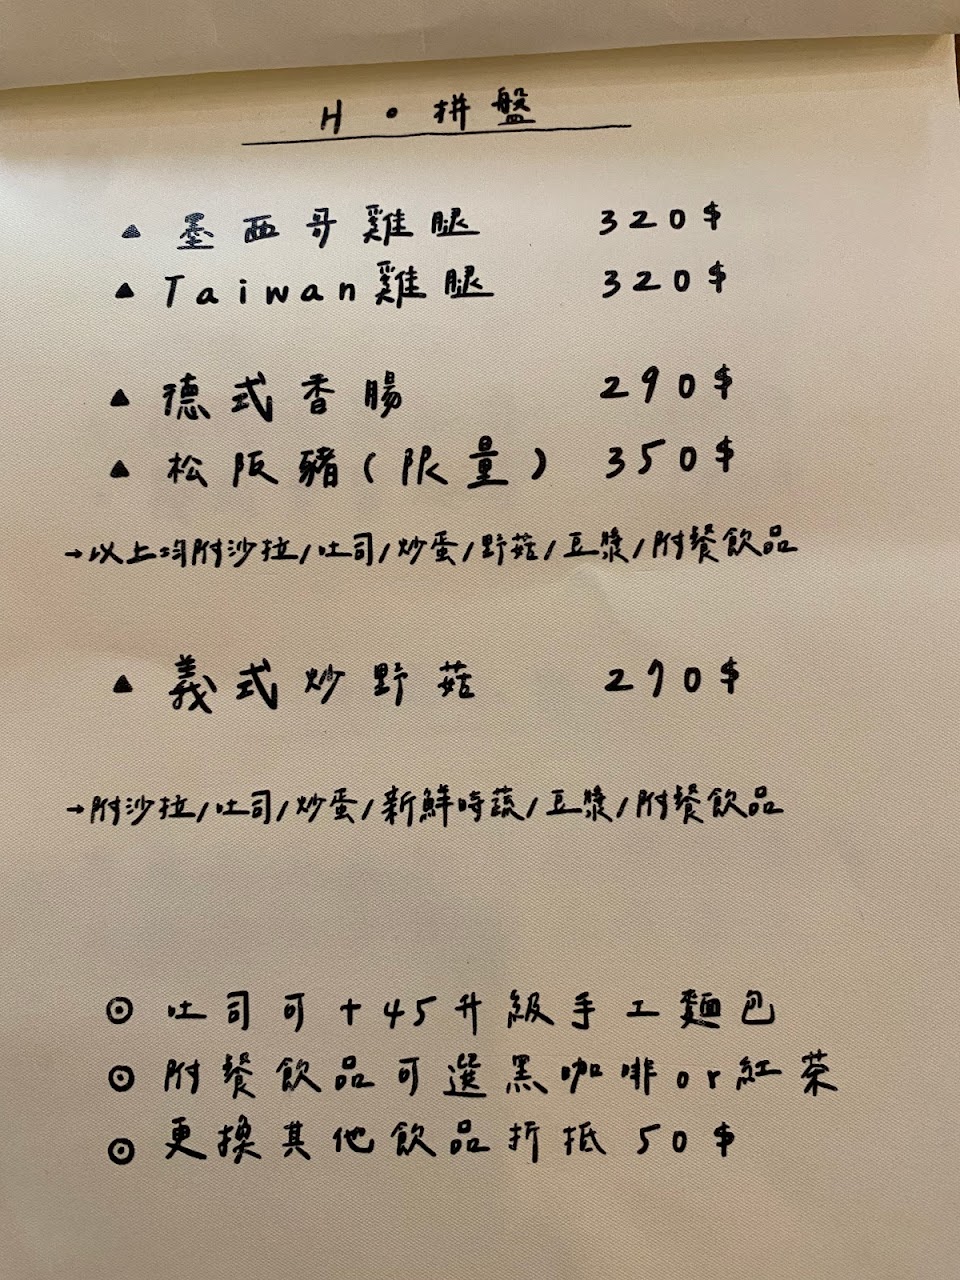 H · 拼盤
▲ 墨西哥雞腿 320$
▲ Taiwan雞腿 320$
▲ 德式香腸 290$
▲ 松阪豬(限量) 350$
→以上均附沙拉/吐司/炒蛋/野菇/豆漿/附餐飲品
▲ 義式炒野菇 270$
→附沙拉/吐司/炒蛋/新鮮時蔬/豆漿/附餐飲品
⊙ 吐司可+45升級手工麵包
⊙ 附餐飲品可選黑咖啡or紅茶
⊙ 更換其他飲品折抵50$